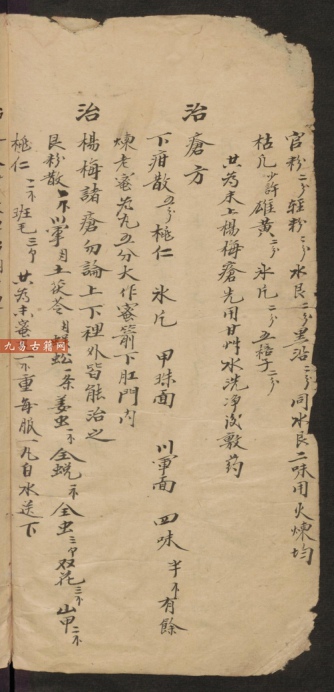 官粉二分 轻粉二分 水艮二分 黑沿二分 同水艮二味用火煉均
枯凡少許 雄黄二分 氷片二分 五棓子二分
共為末上楊梅瘡先用甘艸水洗净後敷药
治瘡方
下疳散五分 桃仁 氷片 甲珠面 川軍面 四味半下有餘
煉老蜜为丸五分大作蜜箭下肛門内
治楊梅諸瘡勿論上下裡外皆能治之
艮粉散一下 川軍 土茯苓 蜈蚣一条 姜虫 全蜕 全虫 双花三下 山甲二下
桃仁二下 班毛三个 共為末蜜 重每服一丸白水送下
九易古籍网